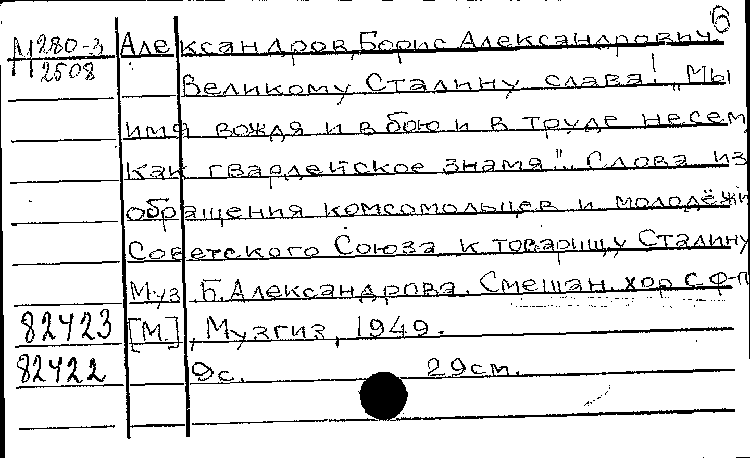 6
М 280-3 Александров, Борис Александрович
2508 Великому Сталину слава! „Мы
имя вождя и в бою и в труде несем,
как гвардейское знамя". Слова из
обращения комсомольцев и молодёжи
Советского Союза к товарищу Сталину
Муз. Б. Александрова. Смешан. хор с ф-п
82423 [М.], Музгиз, 1949.
82422 9с. 29см.